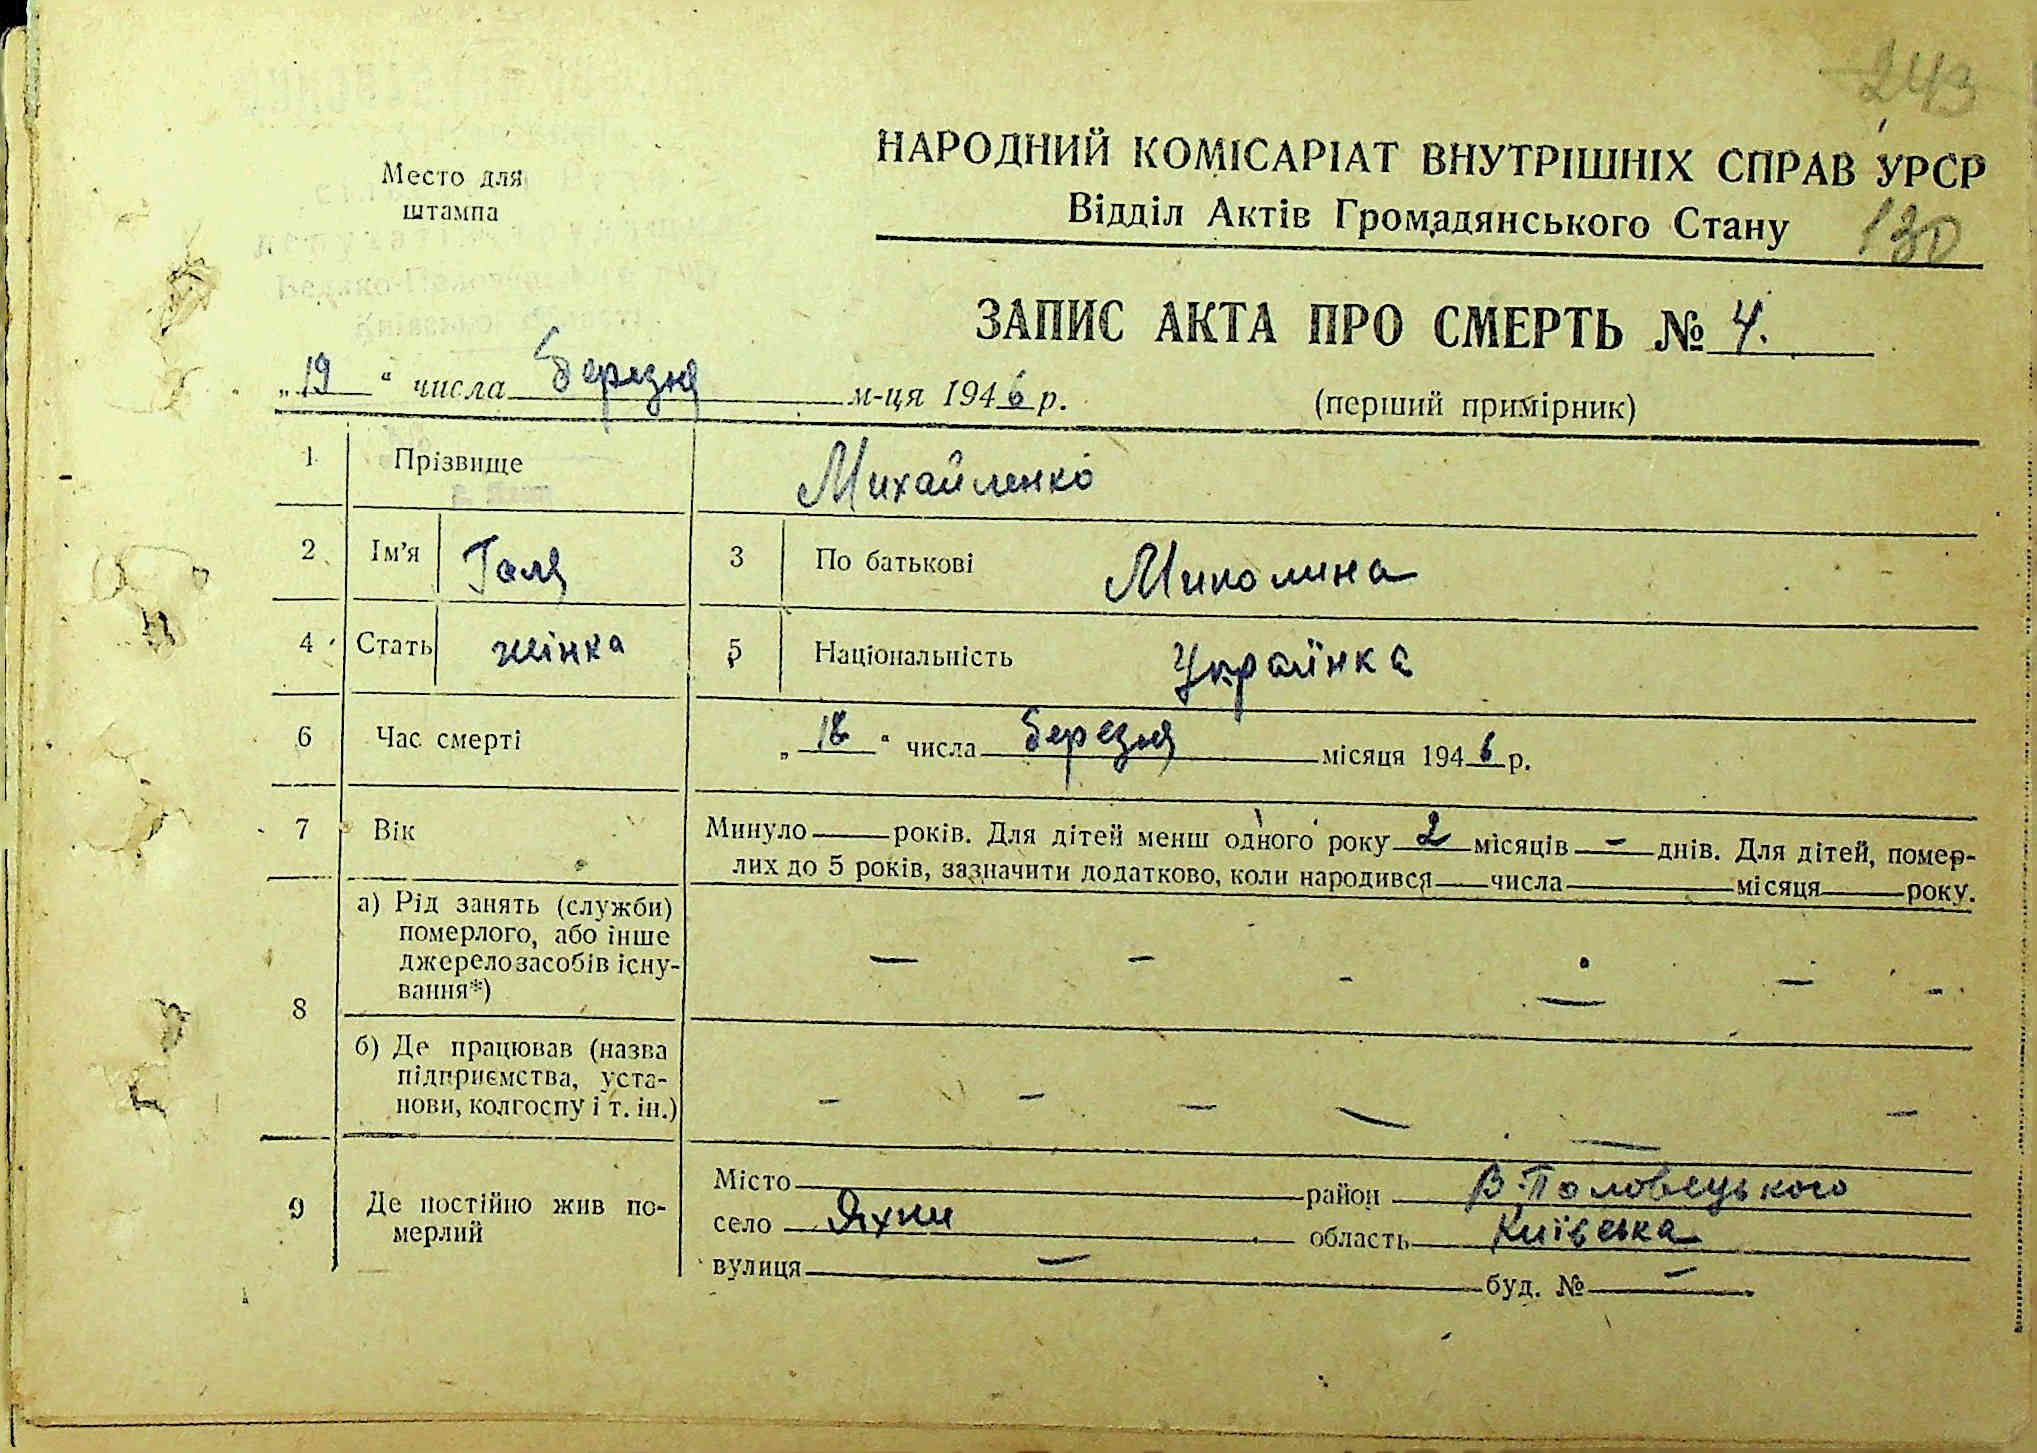 243
НАРОДНИЙ КОМІСАРІАТ ВНУТРІШНІХ СПРАВ УРСР
Место для
штампа
Відділ Актів Громадянського Стану
130
ЗАПИС АКТА ПРО СМЕРТЬ № 4.
„19“ числа березня м-ця 1946 р.
(перший примірник)
1 Прізвище Михайленко
2 Ім’я Галя 3 По батькові Миколина
4 Стать жінка 5 Національність Українка
6 Час смерті „18“ числа березня місяця 1946 р.
7 Вік Минуло — років. Для дітей менш одного року 2 місяців — днів. Для дітей, помер-
лих до 5 років, зазначити додатково, коли народився — числа — місяця — року.
8 а) Рід занять (служби)
померлого, або інше
джерело засобів існу-
вання*)
— — - — — -
б) Де працював (назва
підприємства, уста-
нови, колгоспу і т. ін.)
- — — — — —
9 Де постійно жив по-
мерлий
Місто район В-Половецького
село Яхни область Київська
вулиця — буд. № —